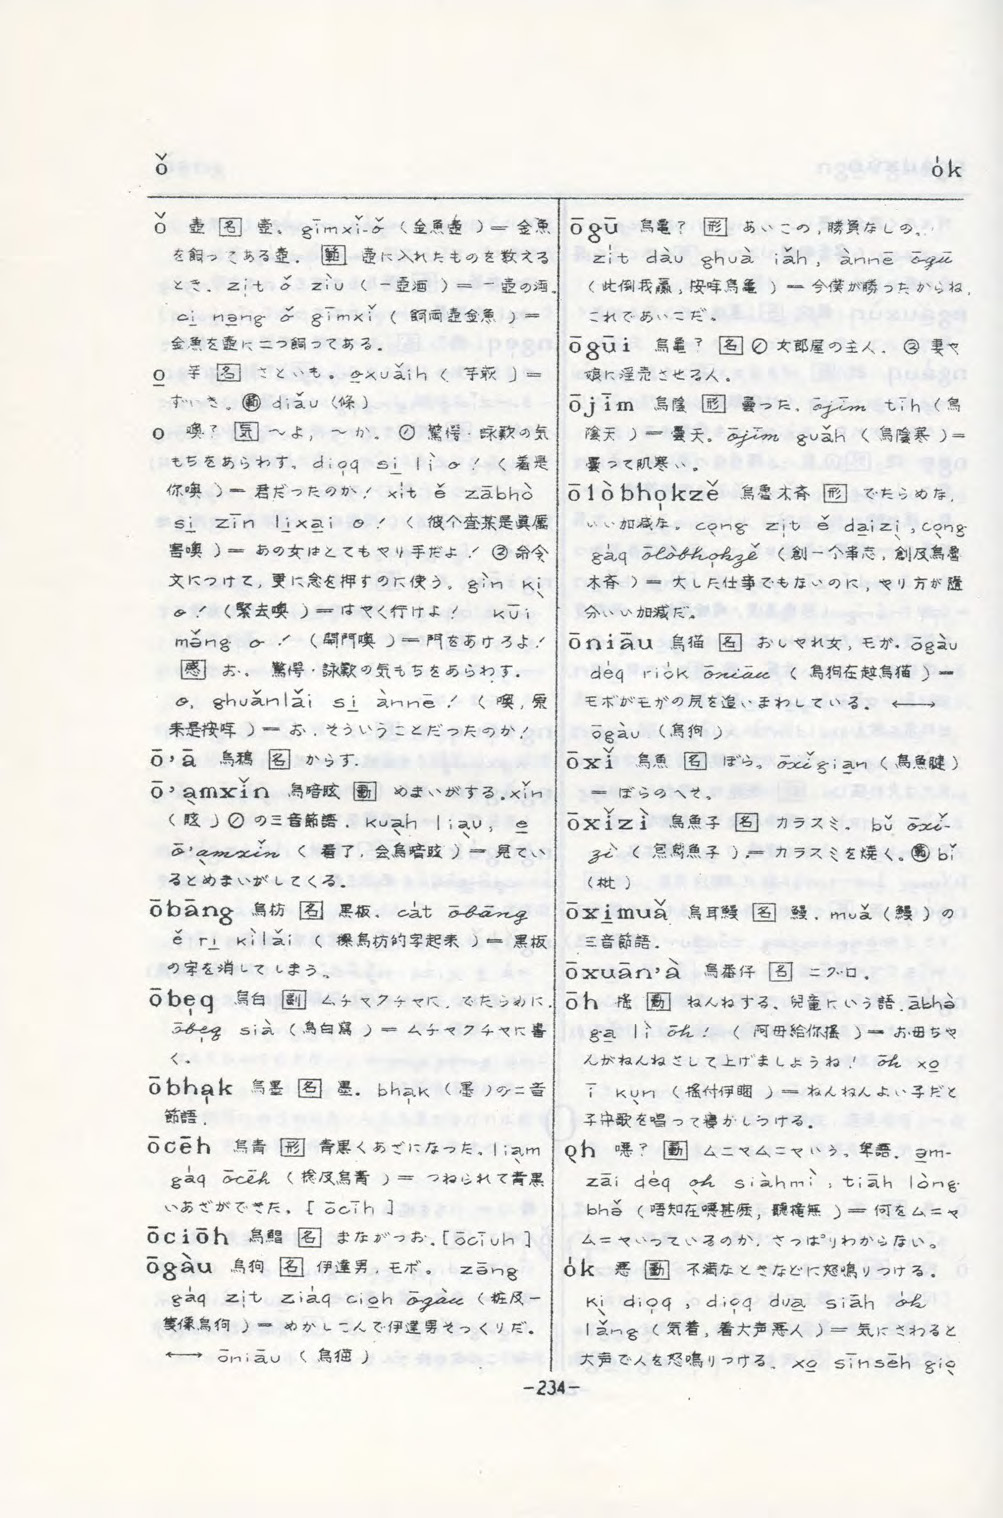 ǒ
ók
ǒ 壺 [名] 壺. gīmxǐ-ǒ (金魚壺) = 金魚
を飼ってある壺. [範] 壺に入れたものを数える
とき. zi̍t ǒ ziù (一壺酒) = 一壺の酒.
ci̠ na̠ng ǒ gīmxǐ (飼両壺金魚) =
金魚を壺に二つ飼ってある.
o̠ 芋 [名] さといも. o̠xuǎih (芋 ) =
ずいき. diǎu (條)
o 噢? [気] ~よ, ~か. ① 驚愕・詠歎の気
もちをあらわす. dio̍q si̠ lì o! (着是
你噢) = 君だったのか! xi̍t ě zābhò
si̠ zīn li̠xa̠i o! (彼个查某是真厲
害噢) = あの女はとてもやり手だよ! ② 命令
文につけて, 更に念を押すのに使う. gìn kì
o! (緊去噢) = はやく行けよ! kūi
mǒng o! (開門噢) = 門をあけろよ!
[感] お. 驚愕・詠歎の気もちをあらわす.
o, ghuǎnlǎi si̠ ànnē! (噢, 原
来是按哼) = お, そういうことだったのか!
ō'ā 烏鴉 [名] からす.
ō'a̠mxǐn 烏暗眩 [動] めまいがする. xǐn
(眩) ① の三音節語. kuah liau, e̠
ō'a̠mxǐn (看了, 会烏暗眩) = 見てい
るとめまいがしてくる.
ōbāng 烏枋 [名] 黒板. cát ōbāng
ě ri̠ kìlǎi (擦烏枋的字起来) = 黒板
の字を消してしまう.
ōbe̍q 烏白 [副] ムチャクチャに. でたらめに.
ōbe̍q sià (烏白寫) = ムチャクチャに書
く.
ōbha̍k 烏墨 [名] 墨. bha̍k (墨) の二音
節語.
ōcēh 烏青 [形] 青黒くあざになった. liam
gáq ōcēh (捻及烏青) = つねられて青黒
いあざができた. [ōcīh]
ōciōh 烏鯧 [名] まながつお. [ōcīuh]
ōgàu 烏狗 [名] 伊達男. モボ. zōng
gáq zi̍t ziáq cioh ōgàu (粧及一
隻像烏狗) = めかしこんで伊達男そっくりだ.
←→ ōniāu (烏猫)
ōgū 烏亀? [形] あいこの, 勝負なしの.
zi̍t dàu ghuà iǎh, ànnē ōgū
(此倒我贏, 按哼烏亀) = 今僕が勝ったからね,
これであいこだ.
ōgūi 烏亀? [名] ① 女郎屋の主人. ② 妻や
娘に淫売させる人.
ōjīm 烏陰 [形] 曇った. ōjīm tīh (烏
陰天) = 曇天. ōjīm guǎh (烏陰寒) =
曇って肌寒い.
ōlòbho̍kzě 烏魯木斉 [形] でたらめな,
いい加減な. co̠ng zi̍t ě da̠izi, co̠ng
gáq ōlòbho̍kzě (創一个事志, 創及烏魯
木斉) = 大した仕事でもないのに, やり方が随
分いい加減だ.
ōniāu 烏猫 [名] おしゃれ女, モガ. ōgàu
dèq riók ōniāu (烏狗在 烏猫) =
モボがモガの尻を追いまわしている. ←→
ōgàu (烏狗)
ōxǐ 烏魚 [名] ぼら. ōxǐgia̠n (烏魚腱)
= ぼらのへそ.
ōxǐzì 烏魚子 [名] カラスミ. bǔ ōxǐ-
zì ( 烏魚子) = カラスミを焼く. bǐ
(枇)
ōxi̠muǎ 烏耳鰻 [名] 鰻. muǎ (鰻) の
三音節語.
ōxuān'à 烏番仔 [名] ニグロ.
ōh 搖 [動] ねんねする. 児童にいう語. ābhò
ga̠ lì ōh! (阿母給你搖) = お母ちゃ
んがねんねさして上げましょうね. ōh xo̠
ī kùn (搖付伊睏) = ねんねんよい子だと
子守歌を唱って寝かしつける.
o̠h 嗯? [動] ムニャムニャいう. 卑語. a̠m-
zāi dèq o̠h siàhmì, tiāh lòng
bhǒ (唔知在嗯甚麽, 聽攏無) = 何をムニャ
ムニャいっているのか, さっぱりわからない.
ók 悪 [動] 不満なときなどに怒鳴りつける.
kì dio̍q, dio̍q dua̠ siāh ók
lǎng (気着, 着大声悪人) = 気にさわると
大声で人を怒鳴りつける. xo̠ sīnsēh gio̠
-234-